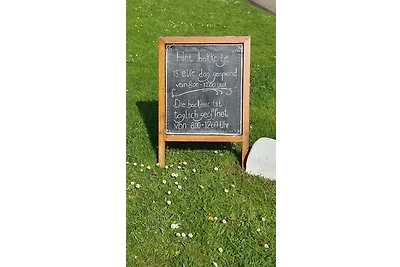 Het bakketje
is elke dag geopend
van 8:00-12:00 uur
Die bäckerei ist
täglich geöffnet
von 8:00-12:00 Uhr